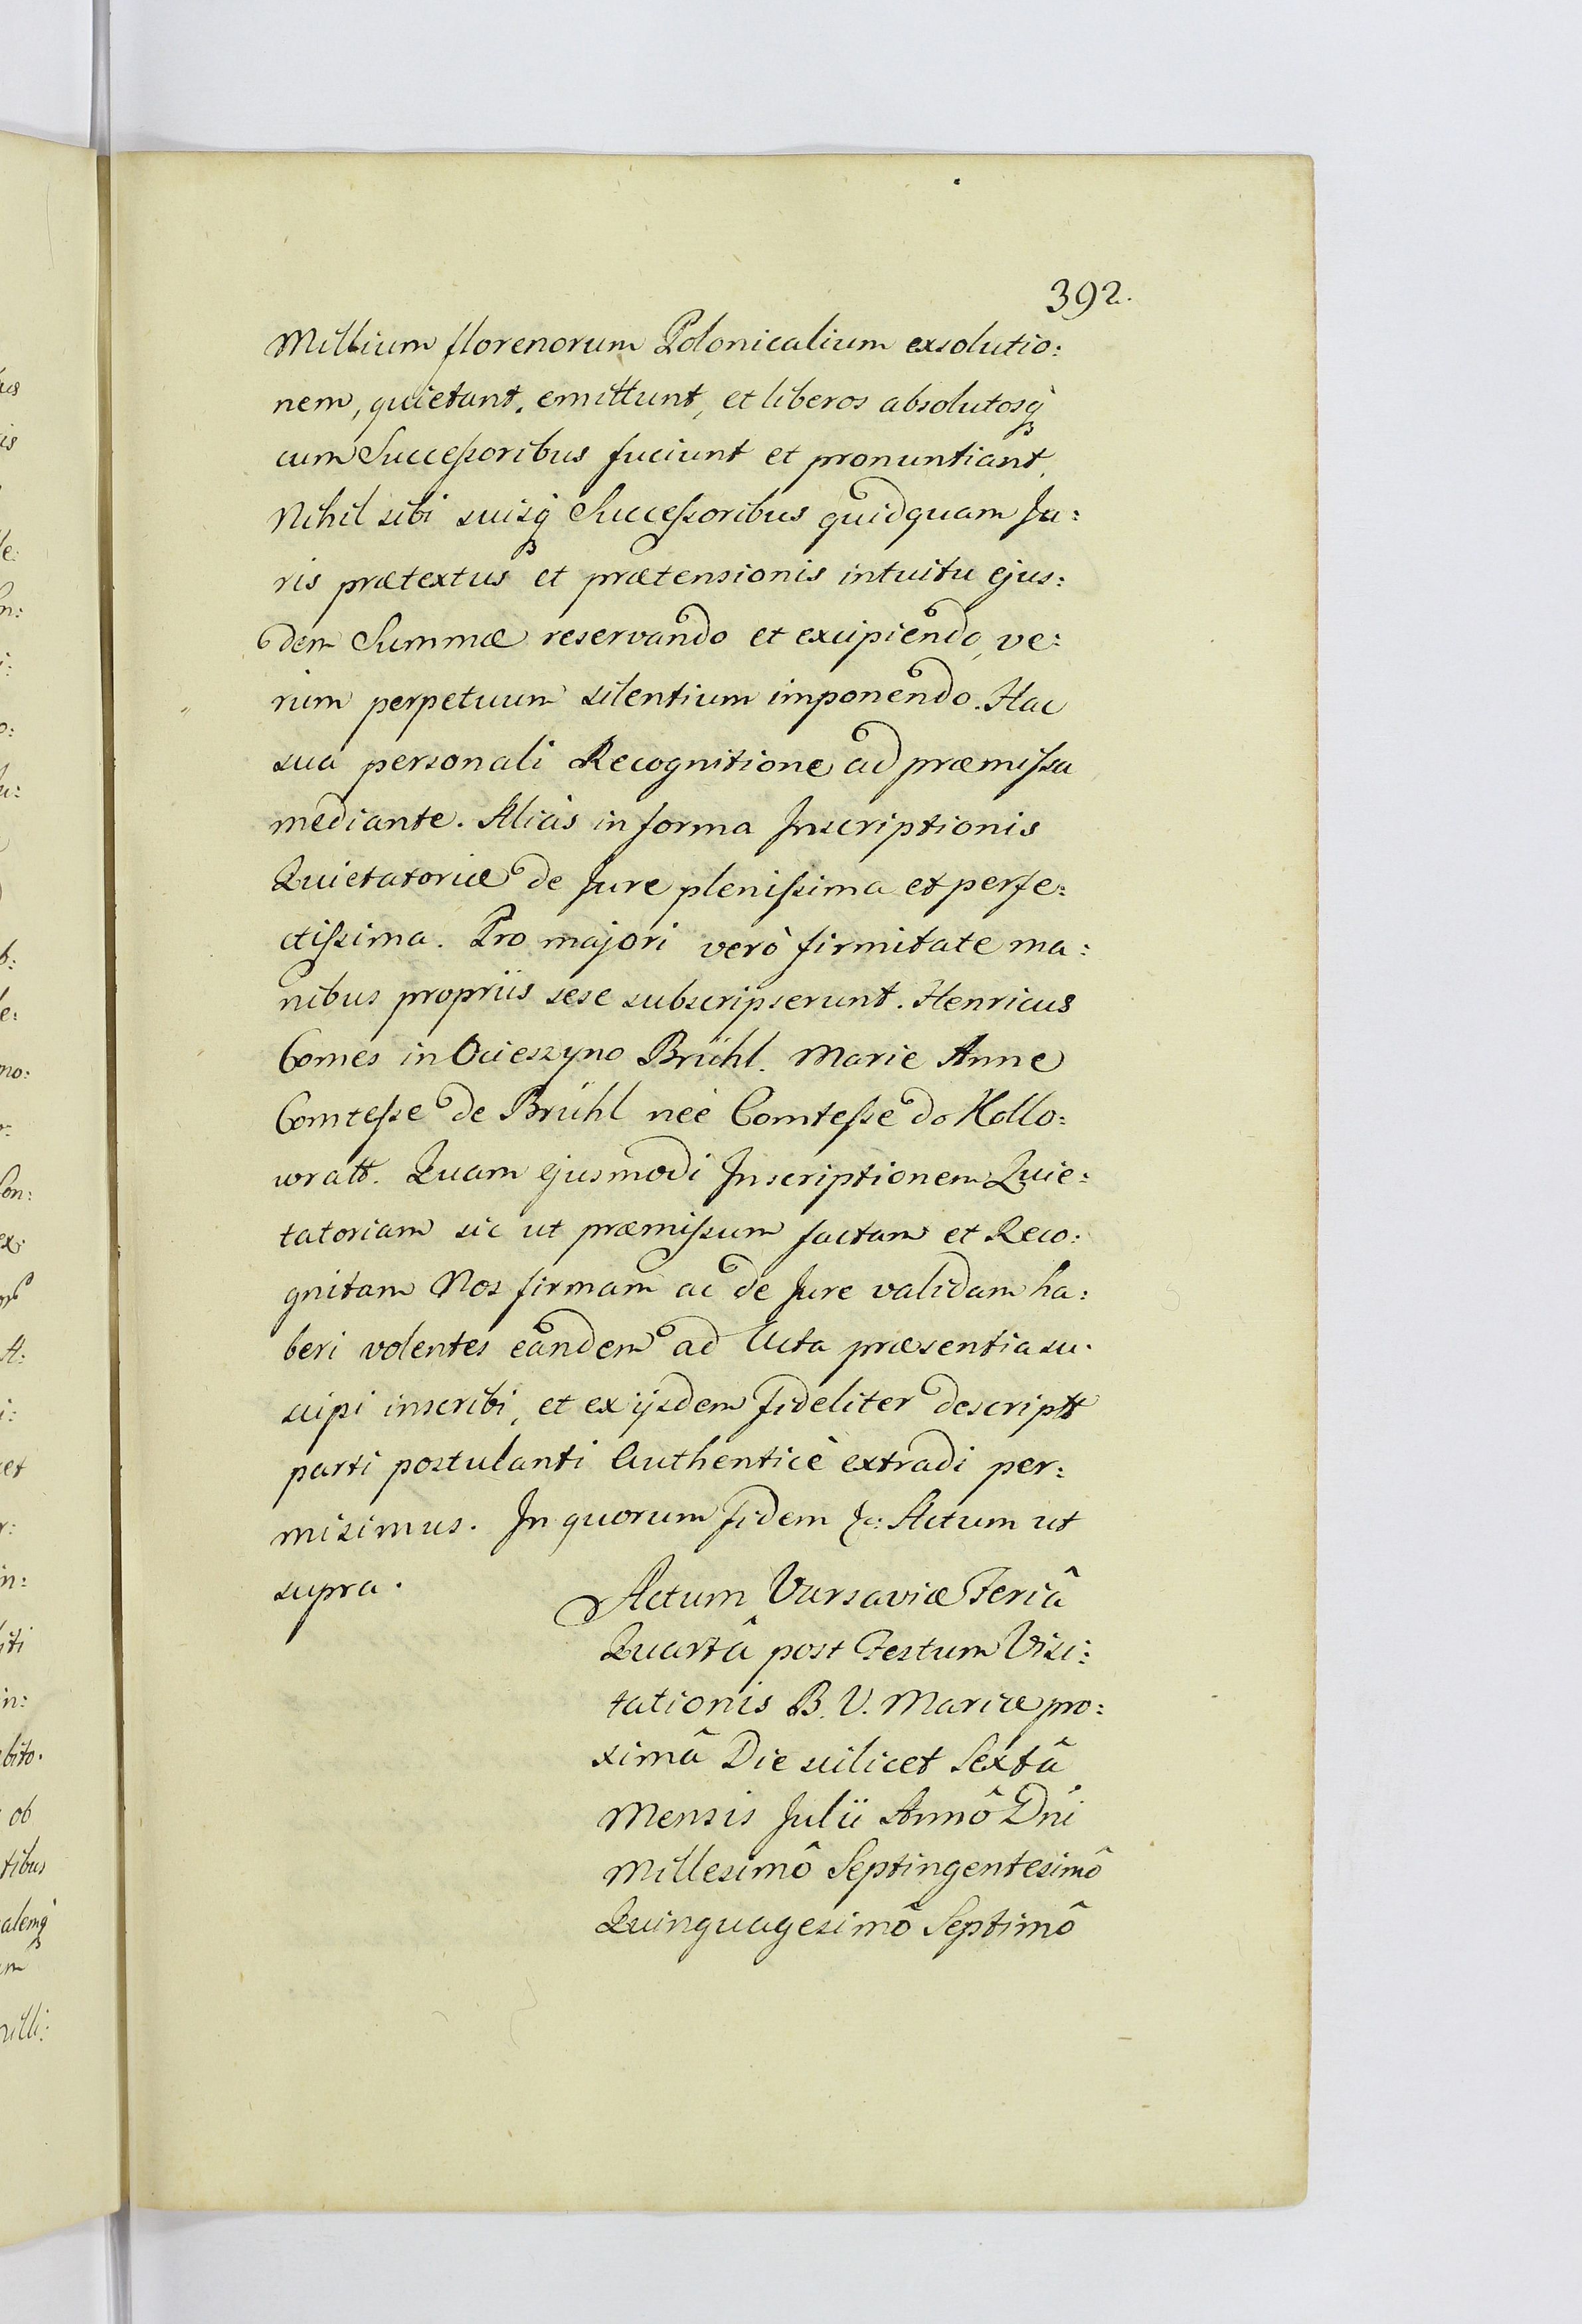 392.
Millium florenorum Polonicalium exsolutio:
nem, quietant, emittunt, et liberos absolutosq̀
cum Succeſsoribus faciunt et pronuntiant,
Nihil sibi suisq̀ Succeſsoribus quidquam Ju:
ris prætextus et prætensionis intuitu ejus:
dem Summæ reservando et excipiendo, ve:
rum perpetuum silentium imponendo. Hac
sua personali Recognitione ad præmiſsa
mediante. Aliàs in forma Inscriptionis
Quietatoriæ de Jure pleniſsima et perfe:
ctiſsima. Pro majori verò firmitate ma:
nibus propriis sese subscripserunt. Henricus
Comes in Ocieszyno Brühl. Marie Anne
Comteſse de Brühl neè Comteſse do Kollo:
wratt. Quam ejusmodi Inscriptionem Quie:
tatoriam sic ut præmiſsum factam et Reco:
gnitam Nos firmam ac de Jure validam ha:
beri volentes eandem ad Acta præsentia su.
scipi inscribi, et ex ijsdem fideliter descriptt
parti postulanti Authenticè extradi per:
misimus. In quorum fidem &c: Actum ut
supra.
Actum Varsaviæ Feriâ
Quartâ post Festum Visi:
tationis B. V. Mariæ pro:
ximâ Die scilicet Sextâ
Mensis Julii Annô Dni
Millesimô Septingentesimô
Quinquagesimô Septimô